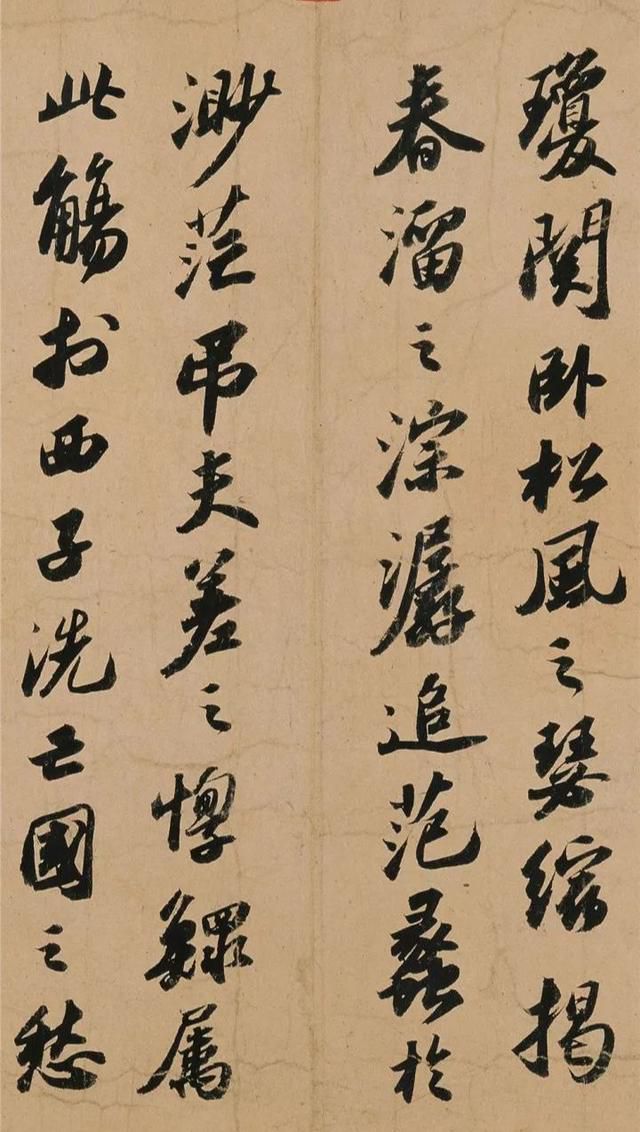 瓊関卧松風之瑟縮揭
春溜之淙潺追范蠡於
渺茫吊夫差之惸鰥属
此觴扵西子洗亡國之愁